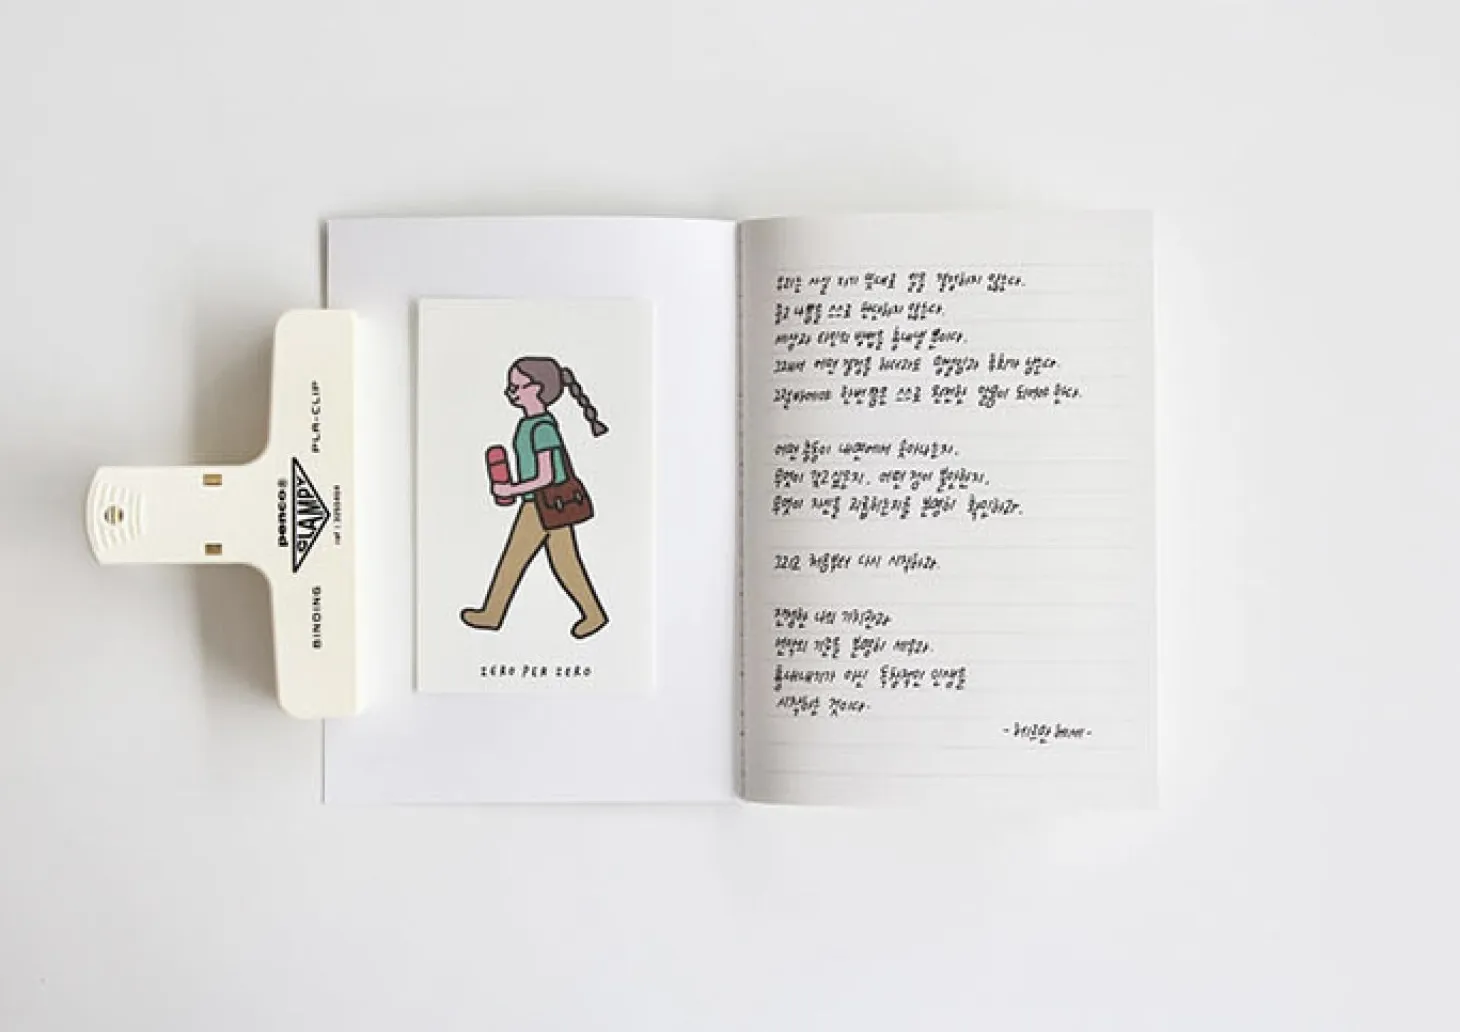 penco®
CLAMPY
PLA-CLIP
BINDING
ZERO PER ZERO
우리는 사실 자기 뜻대로 일을 결정하지 않는다.
옳고 나쁨을 스스로 판단하지 않는다.
세상과 타인의 방법을 흉내낼 뿐이다.
그래서 어떤 결정을 하더라도 망설임과 후회가 남는다.
그럴바에야 한번쯤은 스스로 완전한 혼자이 되어야 한다.
어떤 충동이 내면에서 솟아나는지,
무엇이 갖고싶은지, 어떤 점이 불안한지,
무엇이 자신을 괴롭히는지를 분명히 확인하라.
그리고 처음부터 다시 시작하라.
진정한 나의 가치관과
선악의 기준을 분명히 세우라.
흉내내기가 아닌 독창적인 인생을
시작하는 것이다.
- 헤르만 헤세 -